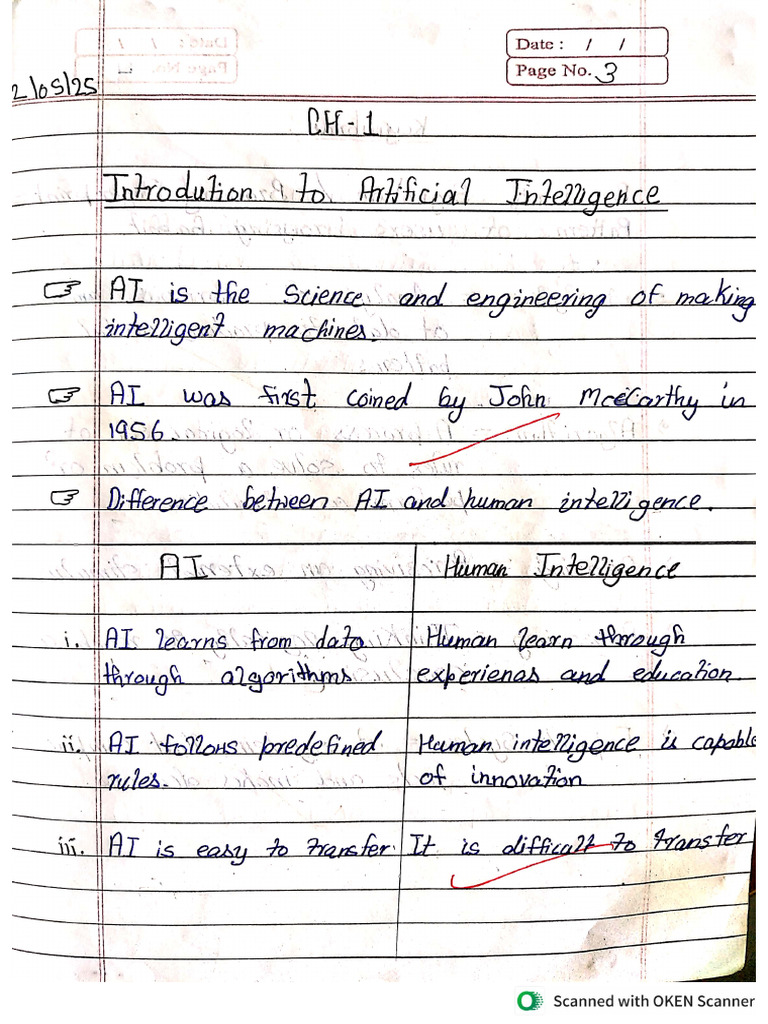 Date : / /
Page No. 3
2/05/25
CH-1
Introdution to Artificial Intelligence
AI is the Science and engineering of making
intelligent machines.
AI was first coined by John McCarthy in
1956.
Difference between AI and human intelligence.
AI Human Intelligence
i. AI learns from data Human learn through
through algorithms experienas and education
ii. AI follows predefined Human intelligence is capable
rules. of innovation
iii. AI is easy to transfer. It is difficalt to transfer
Scanned with OKEN Scanner